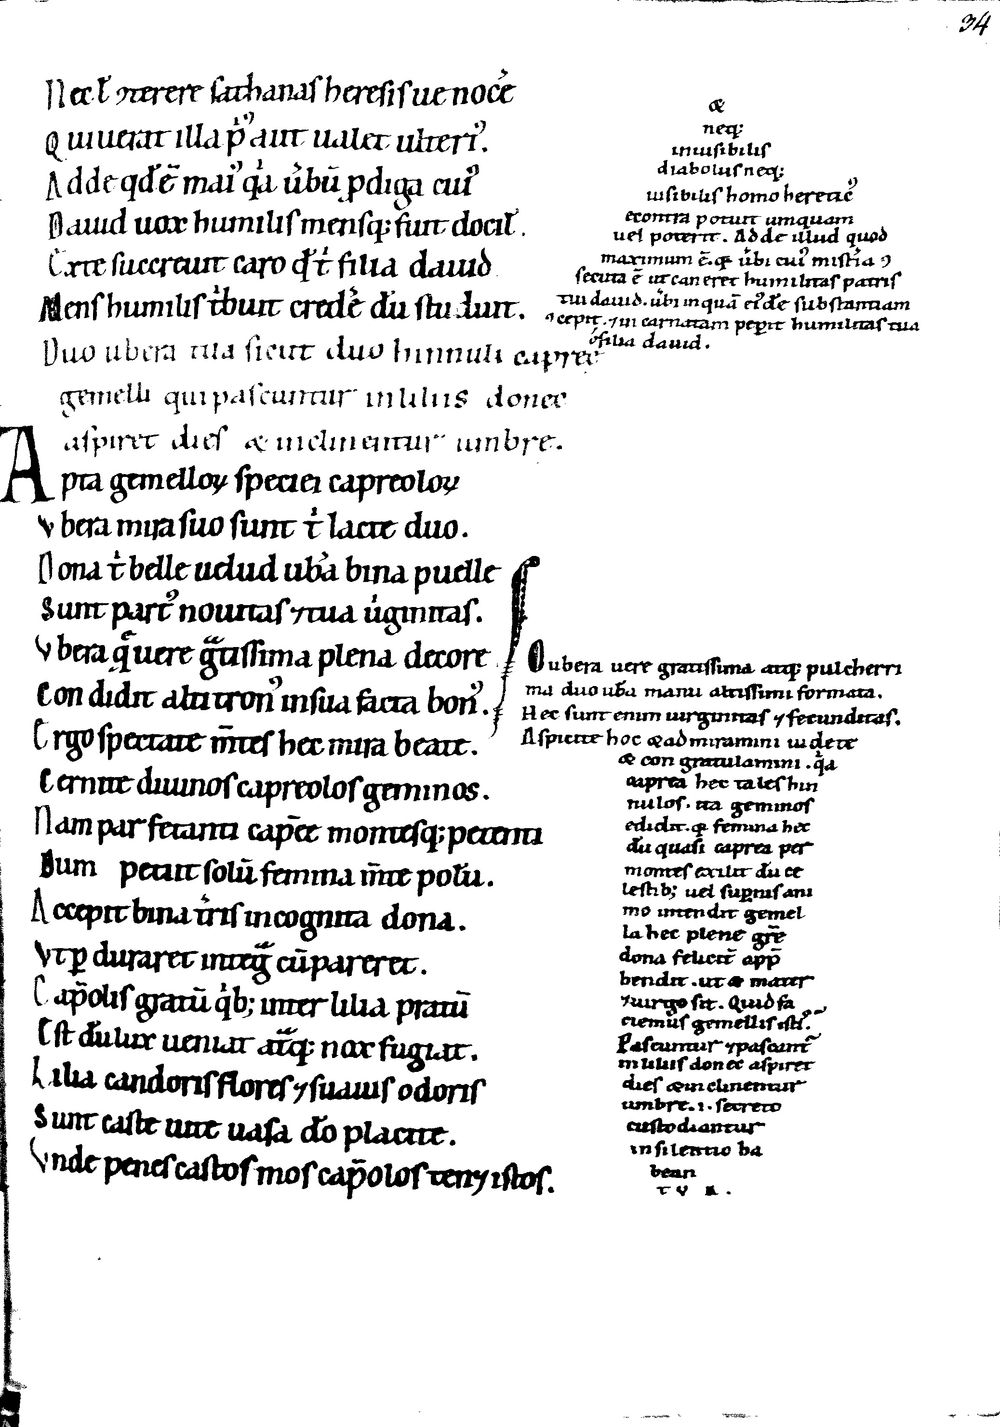 34
Nec t conterere sathanas heresisue nocere
Qui uetat illa prius aut ualet ulterius.
Adde quod est maius quia uerbum prodiga cuius
Dauid uox humilis mensque fuit docilis.
Ex te succreuit caro quod tibi filia dauid
Mens humilis tribuit credere deum studuit.
Duo ubera tua sicut duo hinnuli capree
gemelli qui pascuntur in liliis donec
aspiret dies & inclinentur umbre.
Apta gemellorum speciei capreolorum
Vbera mira suo sunt tibi lacte duo.
Dona tibi belle uelud ubera bina puelle
Sunt partus nouitas 7 tua uirginitas.
Vbera que uere gratissima plena decore
Condidit altitronus in sua facta bonus.
Ergo spectate montes hec mira beate.
Cernite diuinos capreolos geminos.
Nam par fetanti capree montesque petenti
Dum petiit solum femina mente polum.
Accepit bina terris incognita dona.
Vt per duraret integra cum pareret.
Capreolis gratum quibus inter lilia pratum
Est dum lux ueniat atque nox fugiat.
Lilia candoris flores 7 suauis odoris
Sunt caste uite uasa deo placite.
Vnde penes castos mos capreolos tenet istos.
&
neque
inuisibilis
diabolus neque
uisibilis homo hereticus
econtra potuit umquam
uel poterit. Adde illud quod
maximum est quod uerbi cuius misteria con
secuta es ut caneret humilitas patris
tui dauid. uerbi inquam eius de substantiam
accepit. 7 incarnatam peperit humilitas tua
o filia dauid.
O ubera uere gratissima atque pulcherri
ma duo ubera manu altissimi formata.
Hec sunt enim uirginitas 7 fecunditas.
Aspicite hoc & admiramini uidete
& congratulamini. quia
caprea hec tales hin
nulos. ita geminos
edidit. quod femina hec
dum quasi caprea per
montes exilit dum ce
lestibus uel supernis ani
mo intendit gemel
la hec plene gratie
dona feliciter appre
hendit. ut & mater
7 uirgo sit. Quid fa
ciemus gemellis istis.
Pascuntur 7 pascantur
in liliis donec aspiret
dies & inclinentur
umbre. i. secreto
custodiantur
in silentio ha
bean
TVR.